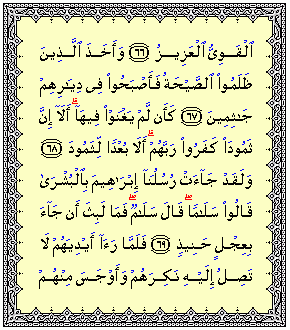 ٱلْقَوِىُّ ٱلْعَزِيزُ ﴿٦٦﴾ وَأَخَذَ ٱلَّذِينَ
ظَلَمُوا۟ ٱلصَّيْحَةُ فَأَصْبَحُوا۟ فِى دِيَـٰرِهِمْ
جَـٰثِمِينَ ﴿٦٧﴾ كَأَن لَّمْ يَغْنَوْا۟ فِيهَآ ۗ أَلَآ إِنَّ
ثَمُودَا۟ كَفَرُوا۟ رَبَّهُمْ ۗ أَلَا بُعْدًا لِّثَمُودَ ﴿٦٨﴾
وَلَقَدْ جَآءَتْ رُسُلُنَآ إِبْرَٰهِيمَ بِٱلْبُشْرَىٰ
قَالُوا۟ سَلَـٰمًا ۖ قَالَ سَلَـٰمٌ ۖ فَمَا لَبِثَ أَن جَآءَ
بِعِجْلٍ حَنِيذٍ ﴿٦٩﴾ فَلَمَّا رَءَآ أَيْدِيَهُمْ لَا
تَصِلُ إِلَيْهِ نَكِرَهُمْ وَأَوْجَسَ مِنْهُمْ